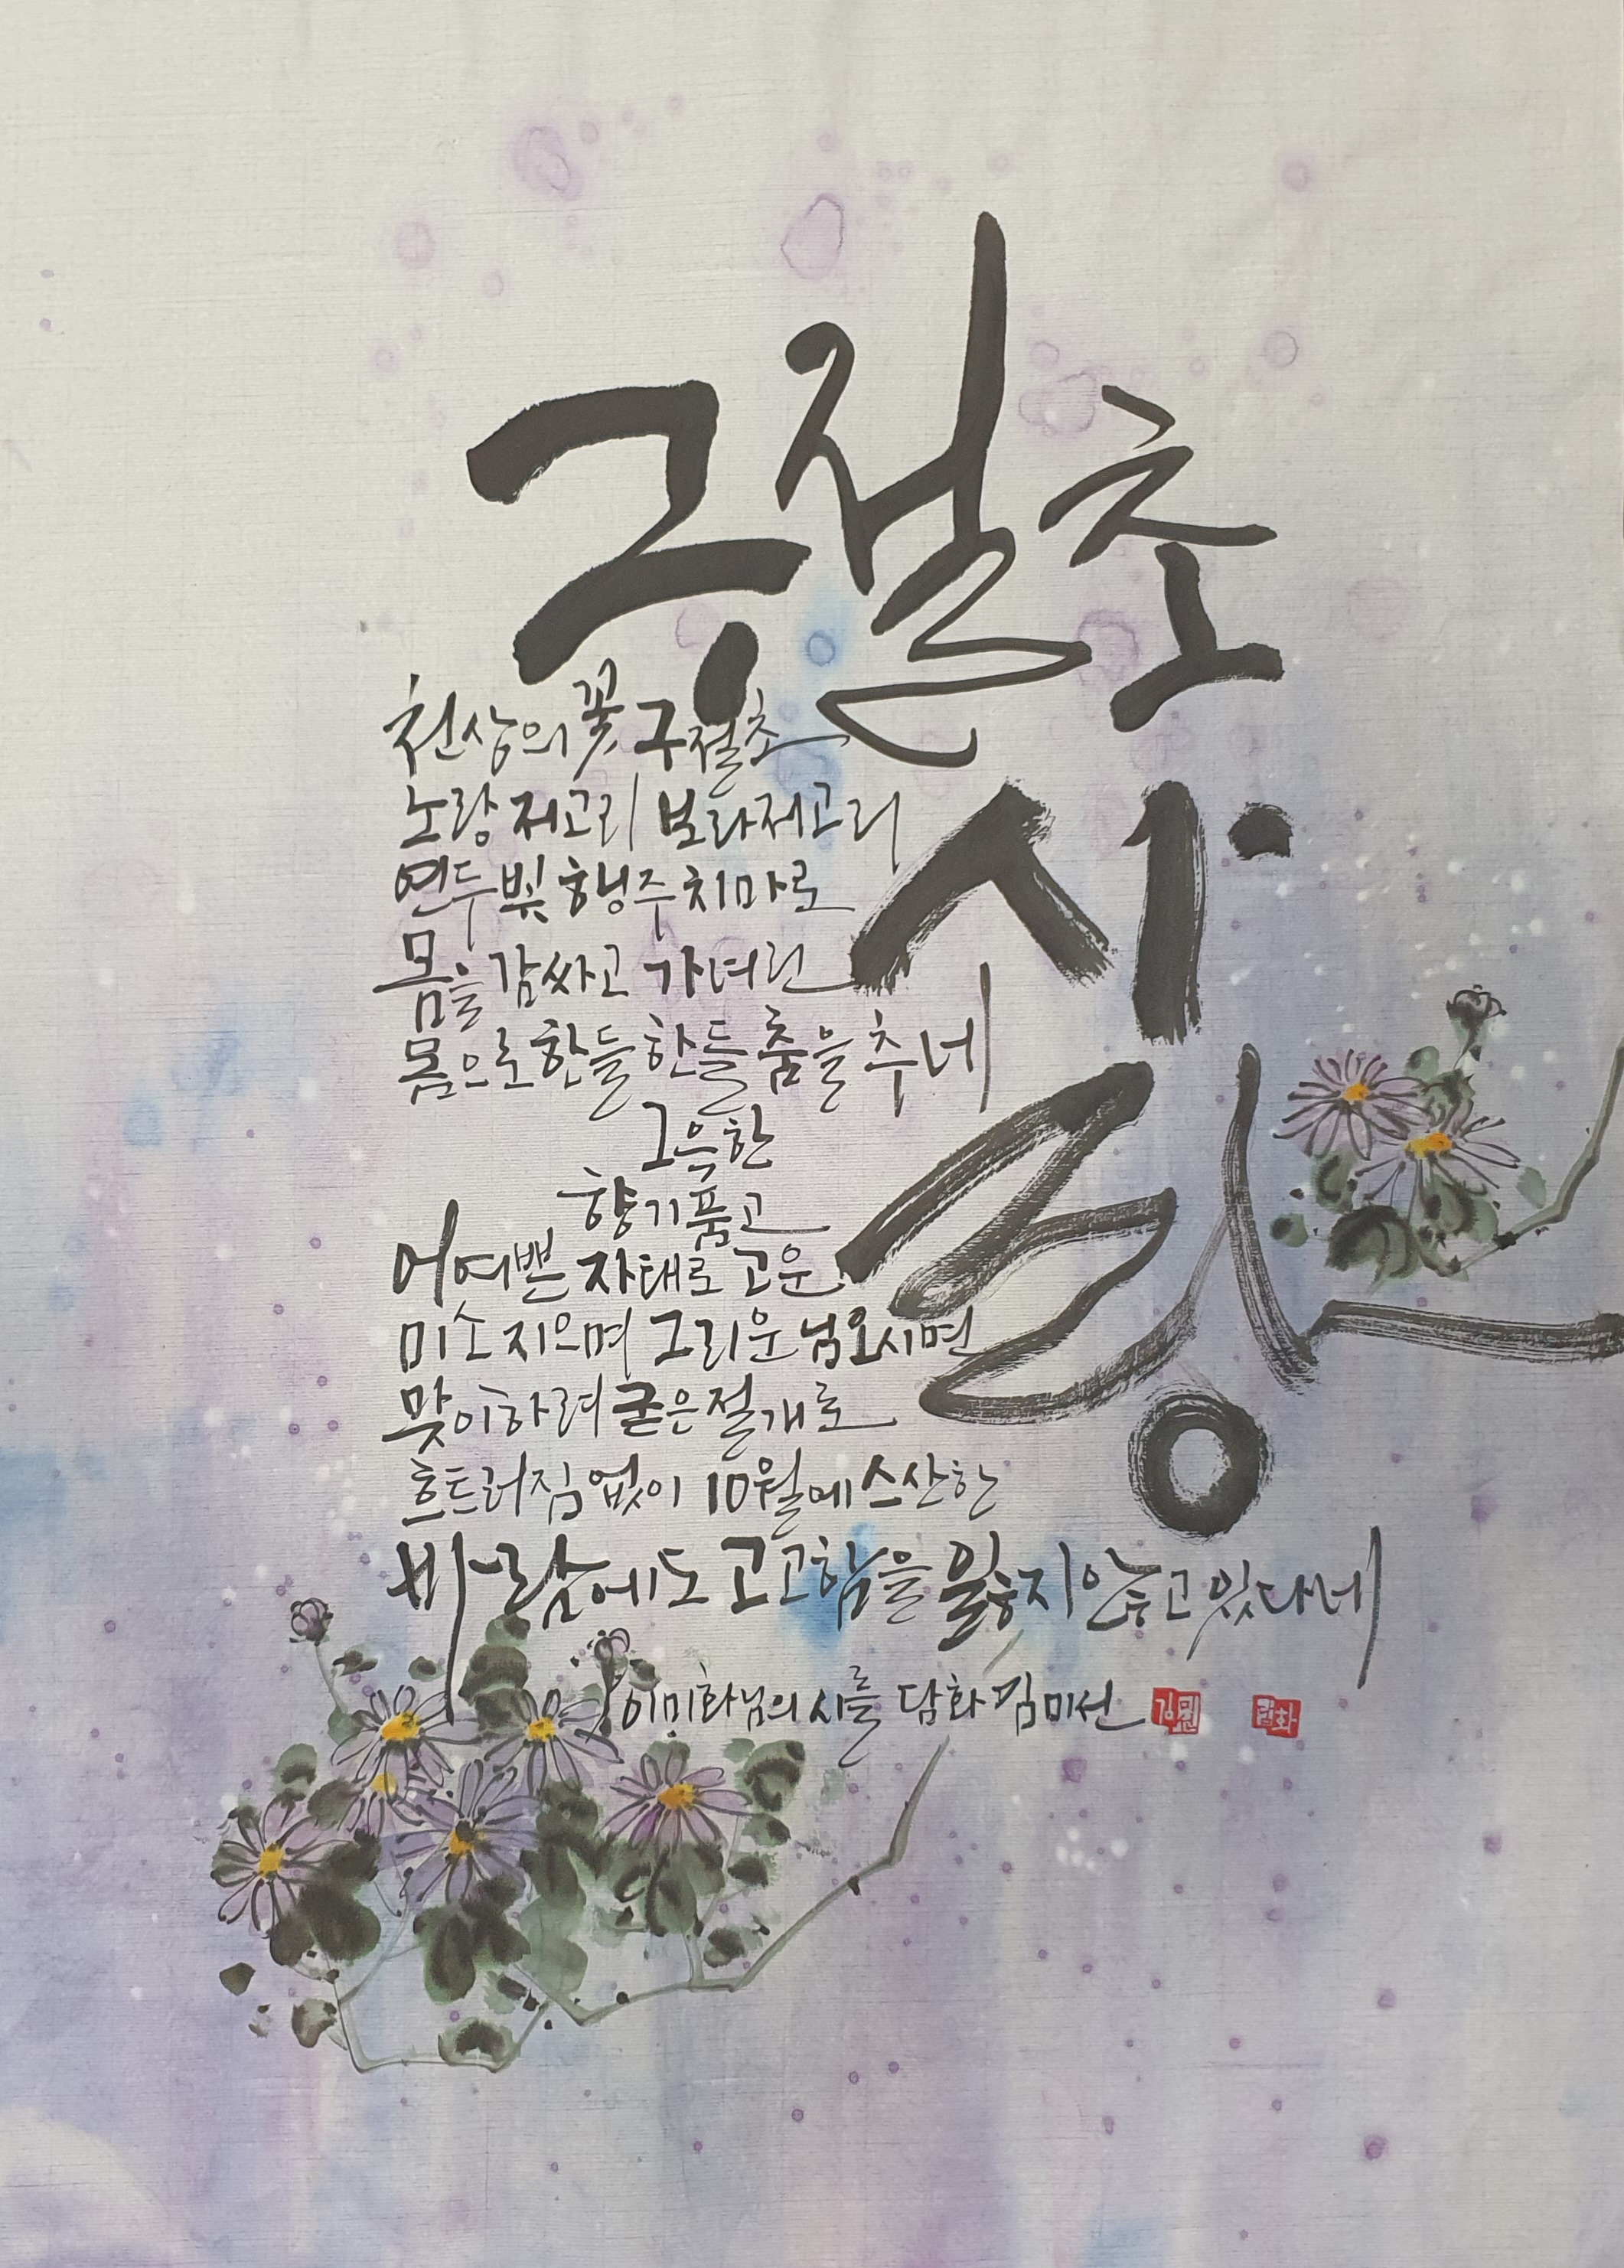 구절초
사랑
천상의 꽃 구절초
노랑 저고리 보라저고리
연두빛 행주치마로
몸을 감싸고 가녀린
몸으로 한들한들 춤을 추네
그윽한
향기품고
어여쁜 자태로 고운
미소 지으며 그리운 님오시면
맞이하려 굳은 절개로
흐트러짐 없이 10월에 스산한
바람에도 고고함을 잃지 않고 있다네
이미화님의 시를 담화 김미선
담화